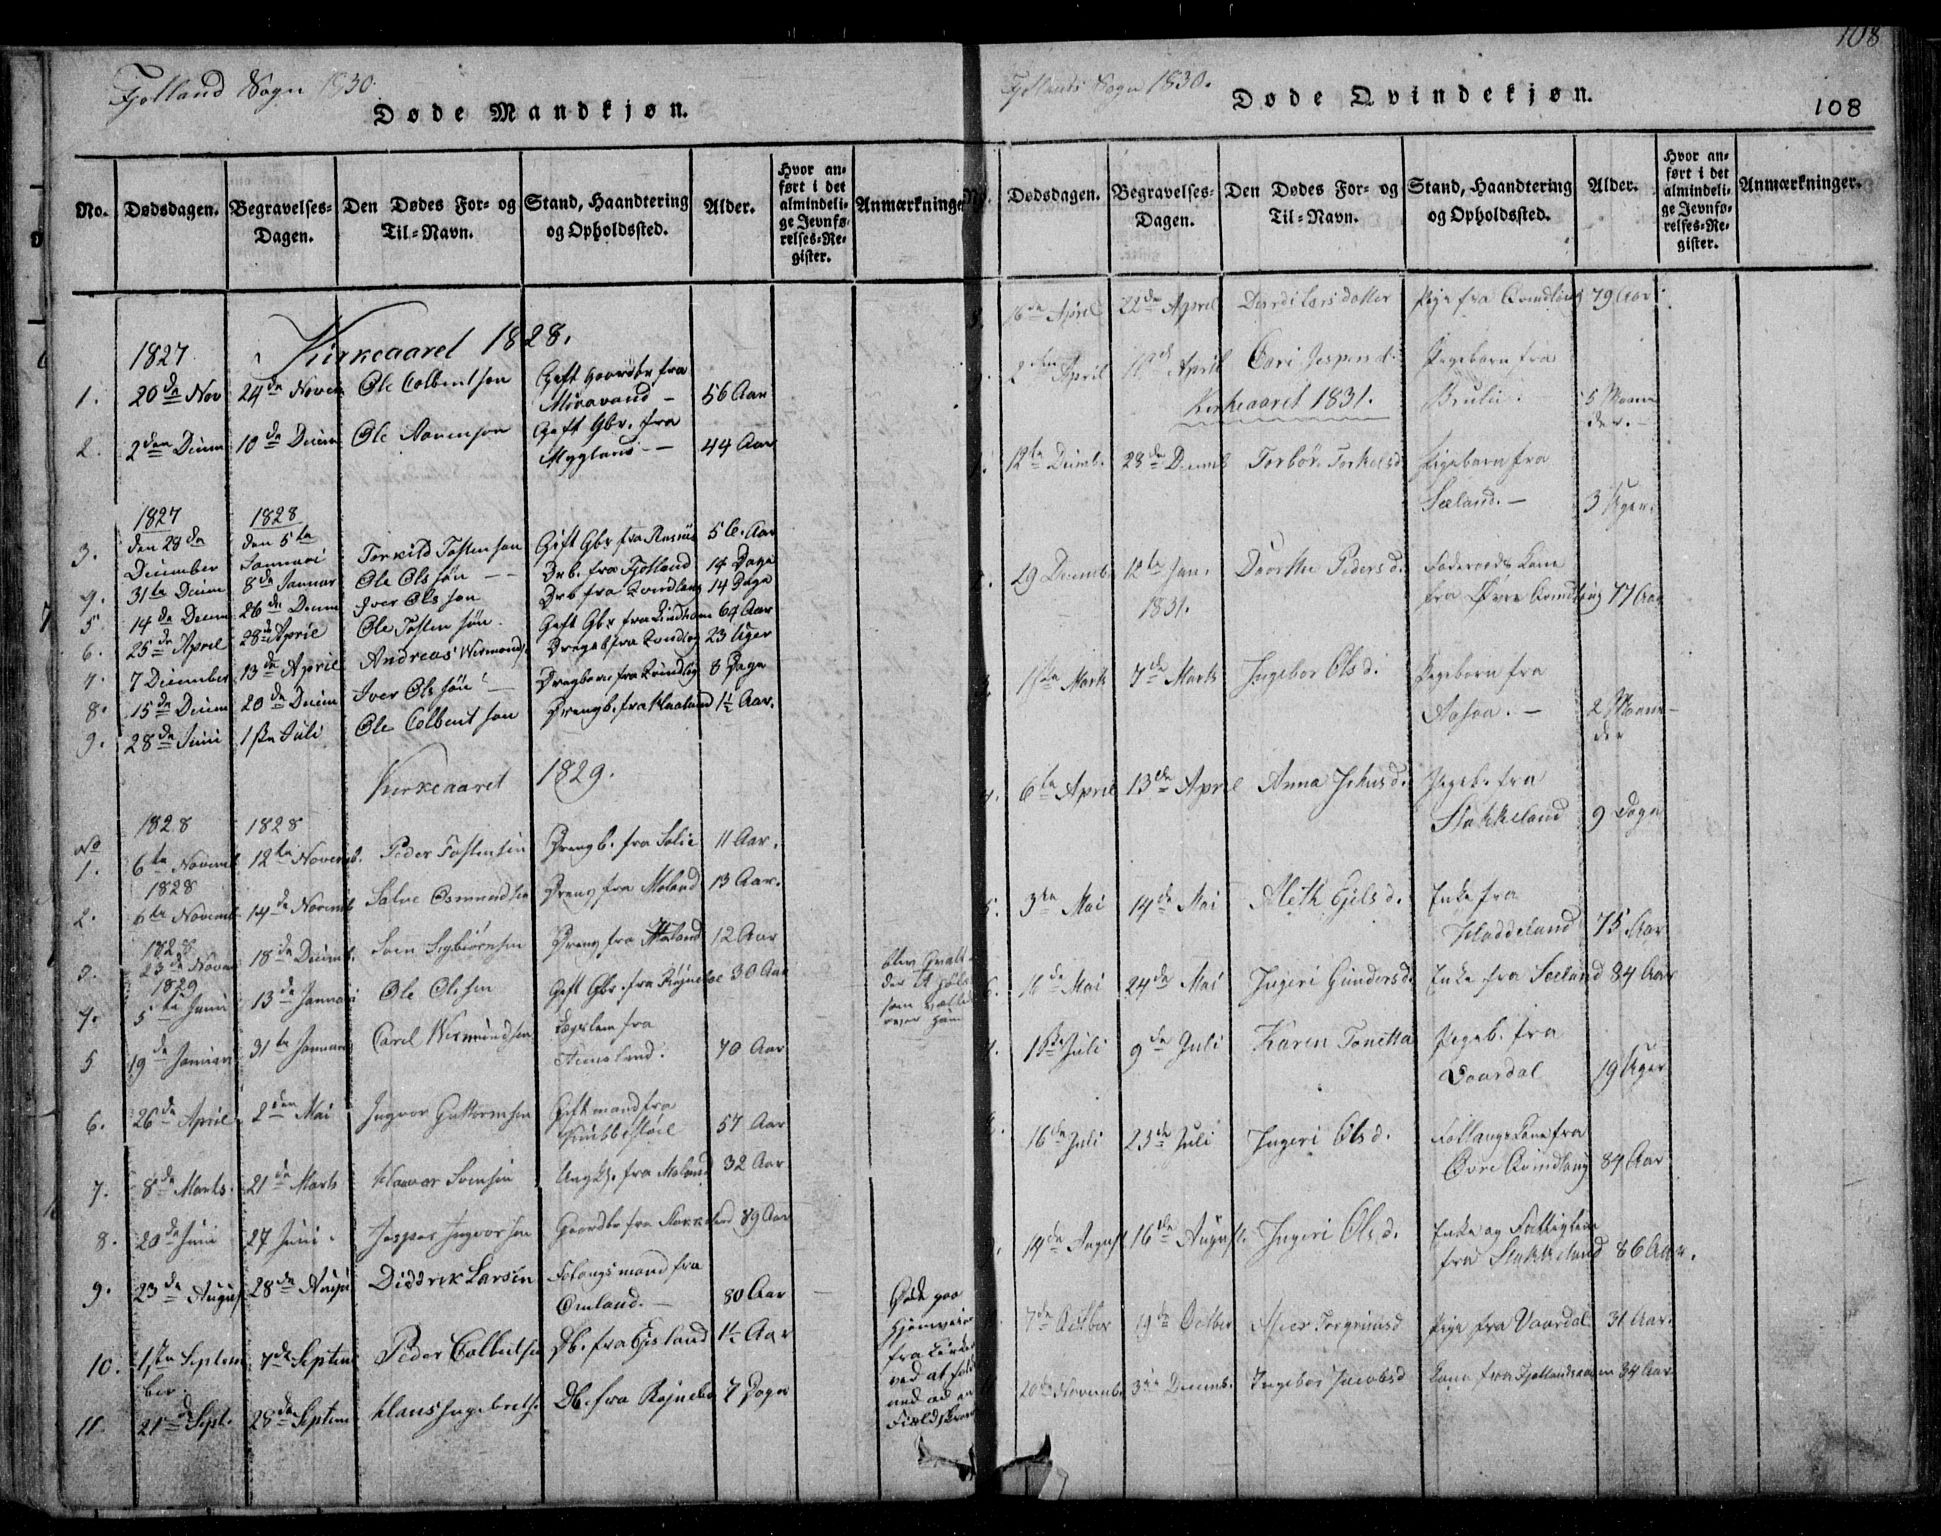 Fjotland Sogn 1830.
Døde Mandkjøn.
No. Dødsdagen. Begravelses-Dagen. Den Dødes For- og Til-Navn. Stand, Haandtering og Opholdssted. Alder. Hvor anført i det almindelige Jevnførelses-Register. Anmærkninger
1827 Kirkeaaret 1828.
1. 20de Nov 24de Novem Ole Colbentson Gift Gaardbr fra
Miravand - 56 Aar
2. 2den Decem 10de Decem Ole Aanenson Gift Gbr. fra
Mygland - 44 Aar
1827 1828
3. den 29de December den 5te Januari Torkild Tostenson Gift Gbr fra 56. Aar
4. 31te Decem 8de Januar Ole Olssøn - Drb. fra Fjotland 14 Dage
5 14de Decem 26de Decem Iver Olsson Drb fra Qvindlog 14 Dage
6. 25de April 28de April Ole Tostensøn. Gift Gbr fra 64 Aar
7. 7 December 13de April Andreas Wermonds. Drengeb fra Qvindlog 23 Uger
8. 15de Decem 20de Decem Iver Olssøn - Drengbarn fra Qvindlog 8 Dage
9. 28de Juni 1ste Juli Ole Colbentson Drengb. fra Haaland 1½ Aar.
Kirkeaaret 1829.
1828 1828
No
1. 6te Novemb 12te Novemb. Peder Tostensen Drengb. fra Solie 11 Aar.
1828
2. 6te Novemb 14de Novemb Salve Osmundsen Dreng fra Moland 13 Aar.
1828
3. 23de Novem 18de Decemb. Sven Sigbiørnsen Dreng fra Moland 12 Aar
1829
4. 5te Janu 13de Januari Ole Olesen Gift Gbr. fra Røjnebo 30 Aar
5 19de Januar 31te Januar Carel Wermundsen Lægslem fra
70 Aar
6. 26de April 2den Mai Ingvor Guttormsen Gift mand fra
57 Aar
7. 8de Marts. 21de Marts Haavor Svensen Ungk. fra Moland 32 Aar
8. 20de Juni 27 Juni. Jesper Ingvorsen Gaardbr fra Stakkeland 89 Aar
9. 23de August 28de August Diddrik Larsen Folaugsmand fra
Omland. - 80 Aar
10. 1ste September 7de Septem Peder Colbentsen Db. fra Egeland 1½ Aar
11. 21de Sept. 28de Septem Klaus Ingebrets. Db. fra Røjnebo 7 Dager
Døde paa
Hjemveien
fra Kirken
ved at falde
ned ad en
108
Fjotlands Sogn 1830.
Døde Qvindekjøn.
108
No. Dødsdagen. Begravelses-Dagen. Den Dødes For- og Til-Navn. Stand, Haandtering og Opholdssted. Alder. Hvor anført i det almindelige Jevnførelses-Register. Anmærkninger.
16de April 22de April Larsdatter Pige fra Qvindlog 79 Aar
2den April April Cari Jespersd. Pigebarn fra
Kirkeaaret 1831. 5 Maaneder. -
12te Decemb. 28de Decemb Torbør Torkelsd Pigebarn fra
Seeland. - 3 Uger.
29 Decemb. 12te Jan. 1831. Doorthe Pedersd. Føderaads Kone
fra Øvre Qvindlog 77 Aar
1ste Marts 7de Marts Ingebor Olsd. Pigebarn fra
Aasen. - 2 Maaneder
6te April 13de April Anna Johnsd. Pigeb. fra
Stakkeland 9 Dage
5. 3die Mai 14de Mai Aleth Egilsd. Enke fra
Haddeland 75 Aar
6. 16de Mai 24de Mai Ingeri Gundersd. Enke fra Seeland 84 Aar
1ste Juli 9de Juli Karen Tonetta Pigeb. fra
Vaardal 19 Uger
16de Juli 23de Juli Ingeri Olsd. Follaugs Kone fra
Øvre Qvindlog 84 Aar
14de August 16de August. Ingeri Olsd. Enke og Fattiglem
fra Stakkeland 86 Aar.
7de Octber 19de Octber Torgrimsd Pige fra Vaardal 31 Aar.
20de Novemb. 3die Decemb. Ingebor Jacobsd Kone fra Fjotlandsaasen 34 Aar